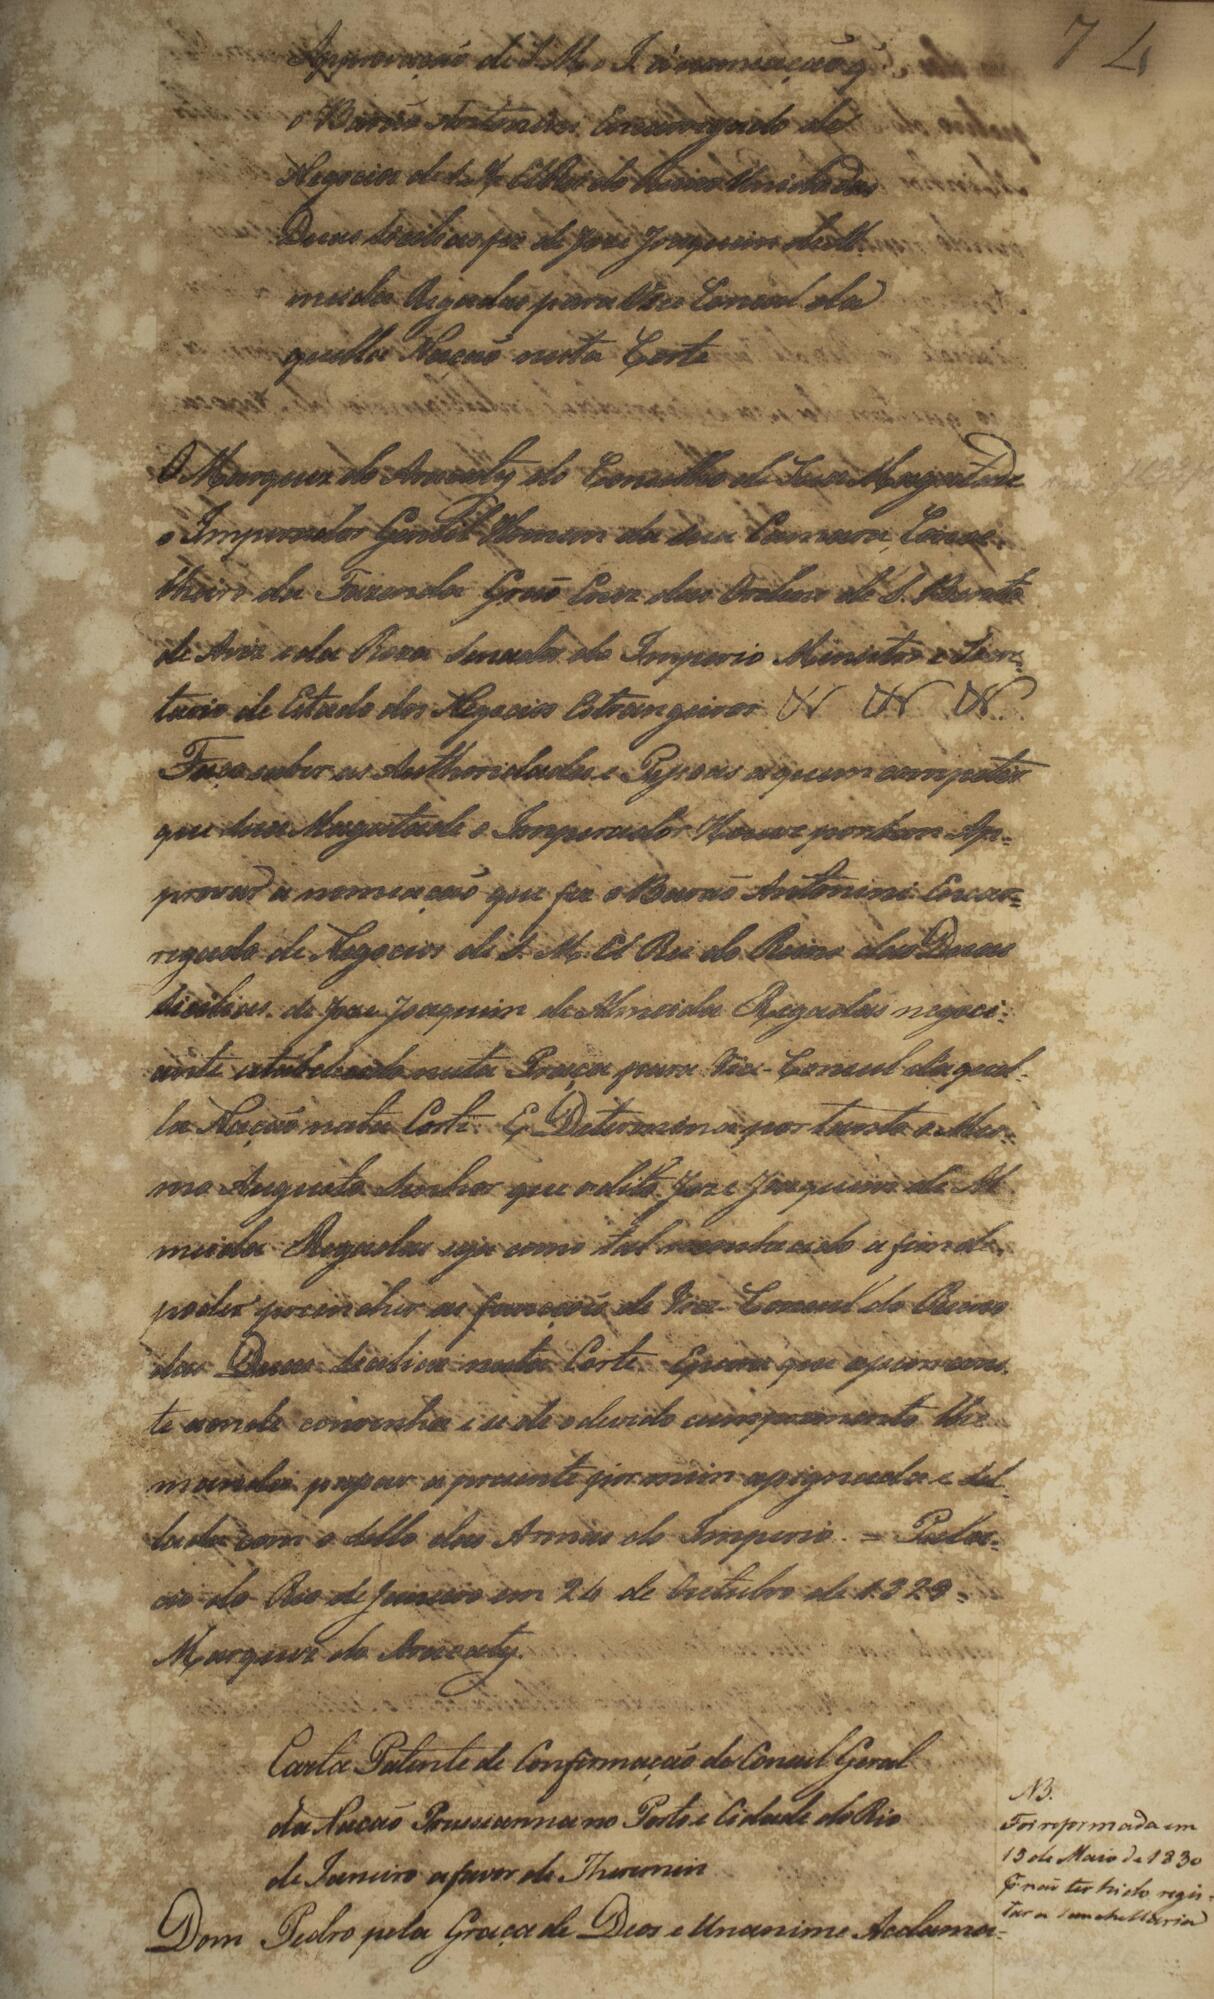 74
Approvação de S. M. o I. á nomeação q̃
o Barão Antonini Encarregado de
Negocios de S. M. ElRei do Reino Unido das
Duas Sicilias fez de Joze Joaquim de Al
meida Regadas para Vice Consul da
quella Nação nesta Corte
O Marquez do Aracaty do Conselho de Sua Magestade
o Imperador Gentil Homem da sua Camara, Conse-
lheiro da Fazenda Grão Cruz das Ordens de S. Bento
de Aviz e da Roza Senador do Imperio Ministro e Secre-
tario de Estado dos Negocios Estrangeiros
Faço saber as Authoridades e Pessoas a quem competir
que Sua Magestade o Imperador Houve por bem Ap-
provar a nomeação que fez o Barão Antonini Encar-
regado de Negocios de S. M. El Rei do Reino das Duas
Sicilias de Joze Joaquim de Almeida Regadas negoci-
ante estabelecido nesta Praça para Vice-Consul daquel-
la Nação nesta Corte. E Determina por tanto o Mes-
mo Augusto Senhor que o dito Joze Joaquim de Al
meida Regadas seja como tal reconhecido a fim de
poder preencher as funcções de Vice-Consul do Reino
das Duas Sicilias nesta Corte. E para que assim cons-
te aonde convenha e se dê o devido cumprimento lhe
mandei passar a presente por mim assignada e sel
lada com o Sello das Armas do Imperio. = Palac-
cio do Rio de Janeiro em 24 de Outubro de 1829 =
Marquez do Aracaty.
Carta Patente de Confirmação de Consul Geral
da Nação Prussianna no Porto e Cidade do Rio
de Janeiro a favor de Theremin
NB.
Foi reformada em
13 de Maio de 1830
p.r não ter hido regis-
tar a Chancellaria
Dom Pedro pela Graça de Deos e Unanime Acclama-